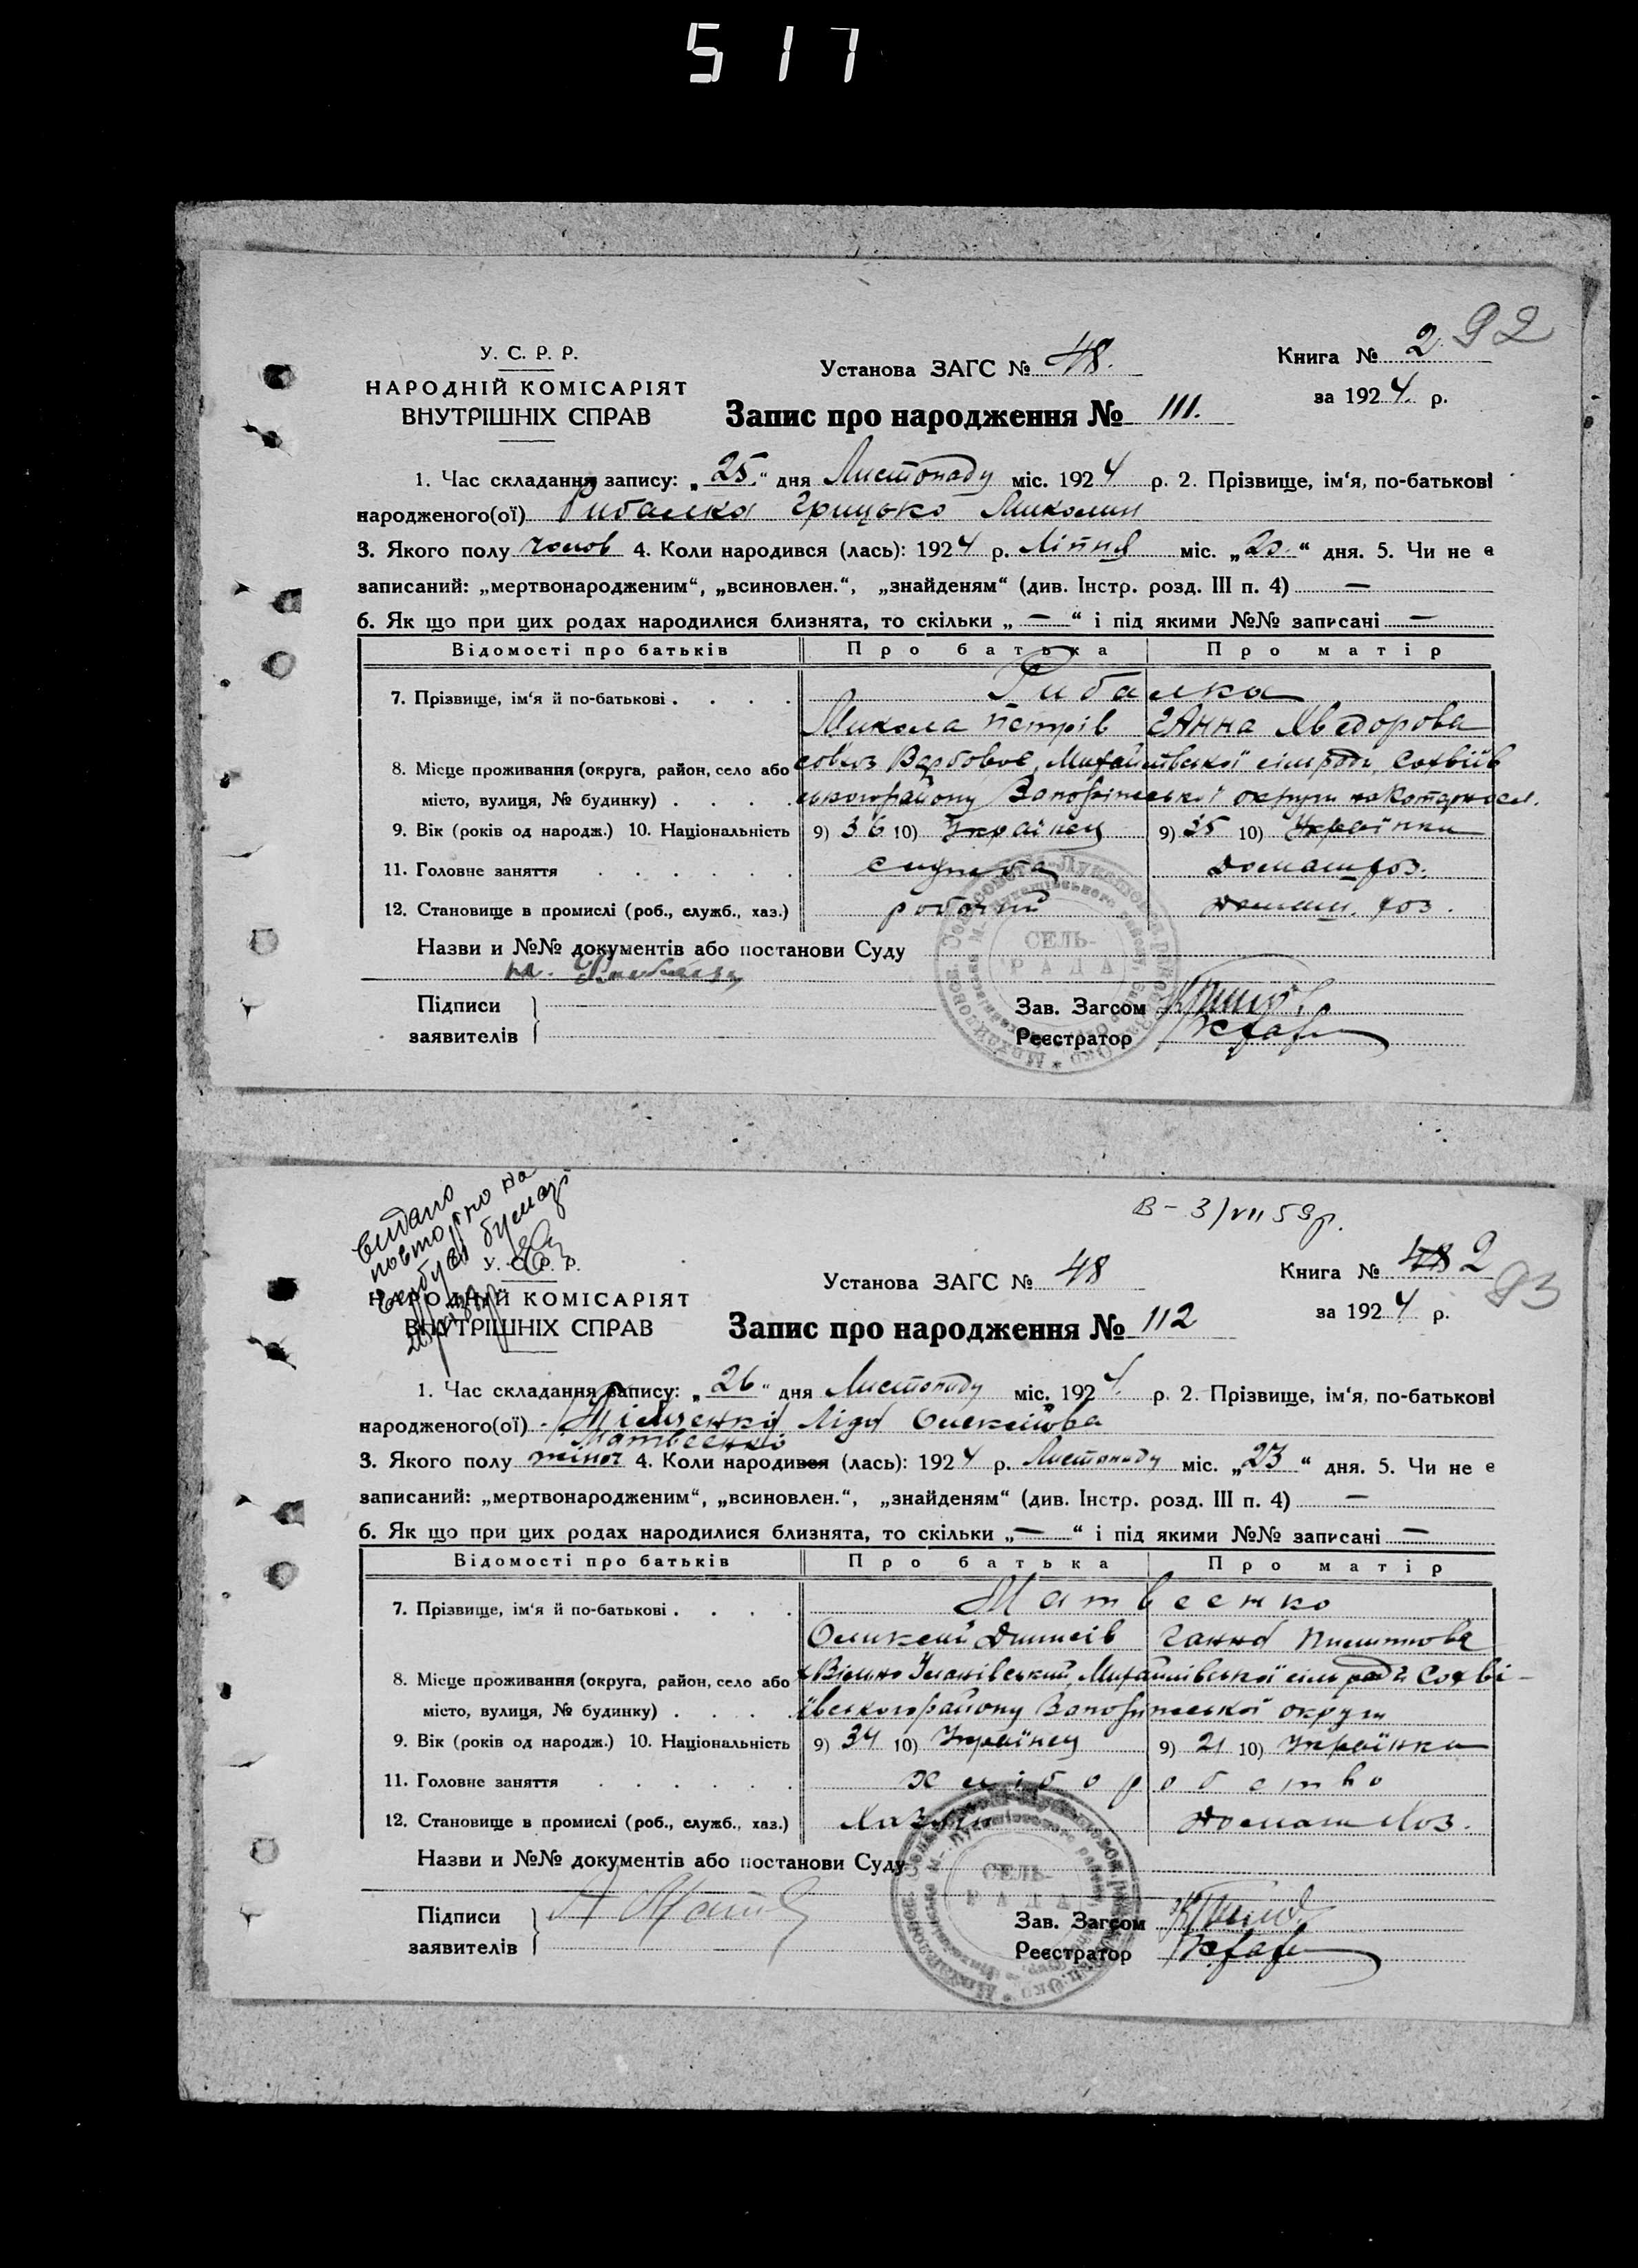 517
92
У. С. Р. Р.
НАРОДНІЙ КОМІСАРІЯТ
ВНУТРІШНІХ СПРАВ
Установа ЗАГС № 48.
Книга № 2
за 1924 р.
Запис про народження № 111.
1. Час складання запису: „25“ дня Листопаду міс. 1924 р. 2. Прізвище, ім‘я, по-батькові
народженого(ої) Рибалка Грицько Миколин
3. Якого полу чолов 4. Коли народився (лась): 1924 р. Липня міс. „20“ дня. 5. Чи не є
записаний: „мертвонародженим“, „всиновлен.“, „знайденям“ (див. Інстр. розд. III п. 4) —
6. Як що при цих родах народилися близнята, то скільки „—“ і під якими №№ записані —
Відомості про батьків Про батька Про матір
7. Прізвище, ім‘я й по-батькові . . . . Рибалка
Микола Петрів Ганна Хведорова
8. Місце проживання (округа, район, село або совхоз Вербовое, Михайлівської сільради, Софіїв
місто, вулиця, № будинку) . . . . ського району Запоріжської округи
9. Вік (років од народж.) 10. Національність 9) 36 10) Українец 9) 35 10) Українка
11. Головне заняття . . . . . . служба домаш хоз.
12. Становище в промислі (роб., служб., хаз.) робочий домаш. хоз.
Назви и №№ документів або постанови Суду
Підписи
заявителів
СЕЛЬ-
РАДА
Зав. Загсом
Реєстратор
видано
повторно на
В - 3/VII 59р.
93
У. С. Р. Р.
НАРОДНІЙ КОМІСАРІЯТ
ВНУТРІШНІХ СПРАВ
Установа ЗАГС № 48
Книга № 48 2
за 1924 р.
Запис про народження № 112
1. Час складання запису: „26“ дня Листопаду міс. 1924 р. 2. Прізвище, ім‘я, по-батькові
народженого(ої) Ліда Олексійова
Матвеенко
3. Якого полу жіноч 4. Коли народився (лась): 1924 р. Листопаду міс. „23“ дня. 5. Чи не є
записаний: „мертвонародженим“, „всиновлен.“, „знайденям“ (див. Інстр. розд. III п. 4) —
6. Як що при цих родах народилися близнята, то скільки „—“ і під якими №№ записані —
Відомості про батьків Про батька Про матір
7. Прізвище, ім‘я й по-батькові . . . . Матвеенко
Олексий Ганна
8. Місце проживання (округа, район, село або Михайлівської сільради Софі-
місто, вулиця, № будинку) . . . . ївського району Запоріжської округи
9. Вік (років од народж.) 10. Національність 9) 34 10) Українец 9) 21 10) Українка
11. Головне заняття . . . . . . хліборобство
12. Становище в промислі (роб., служб., хаз.) Хазяін домаш хоз.
Назви и №№ документів або постанови Суду
Підписи
заявителів
СЕЛЬ-
РАДА
Зав. Загсом
Реєстратор